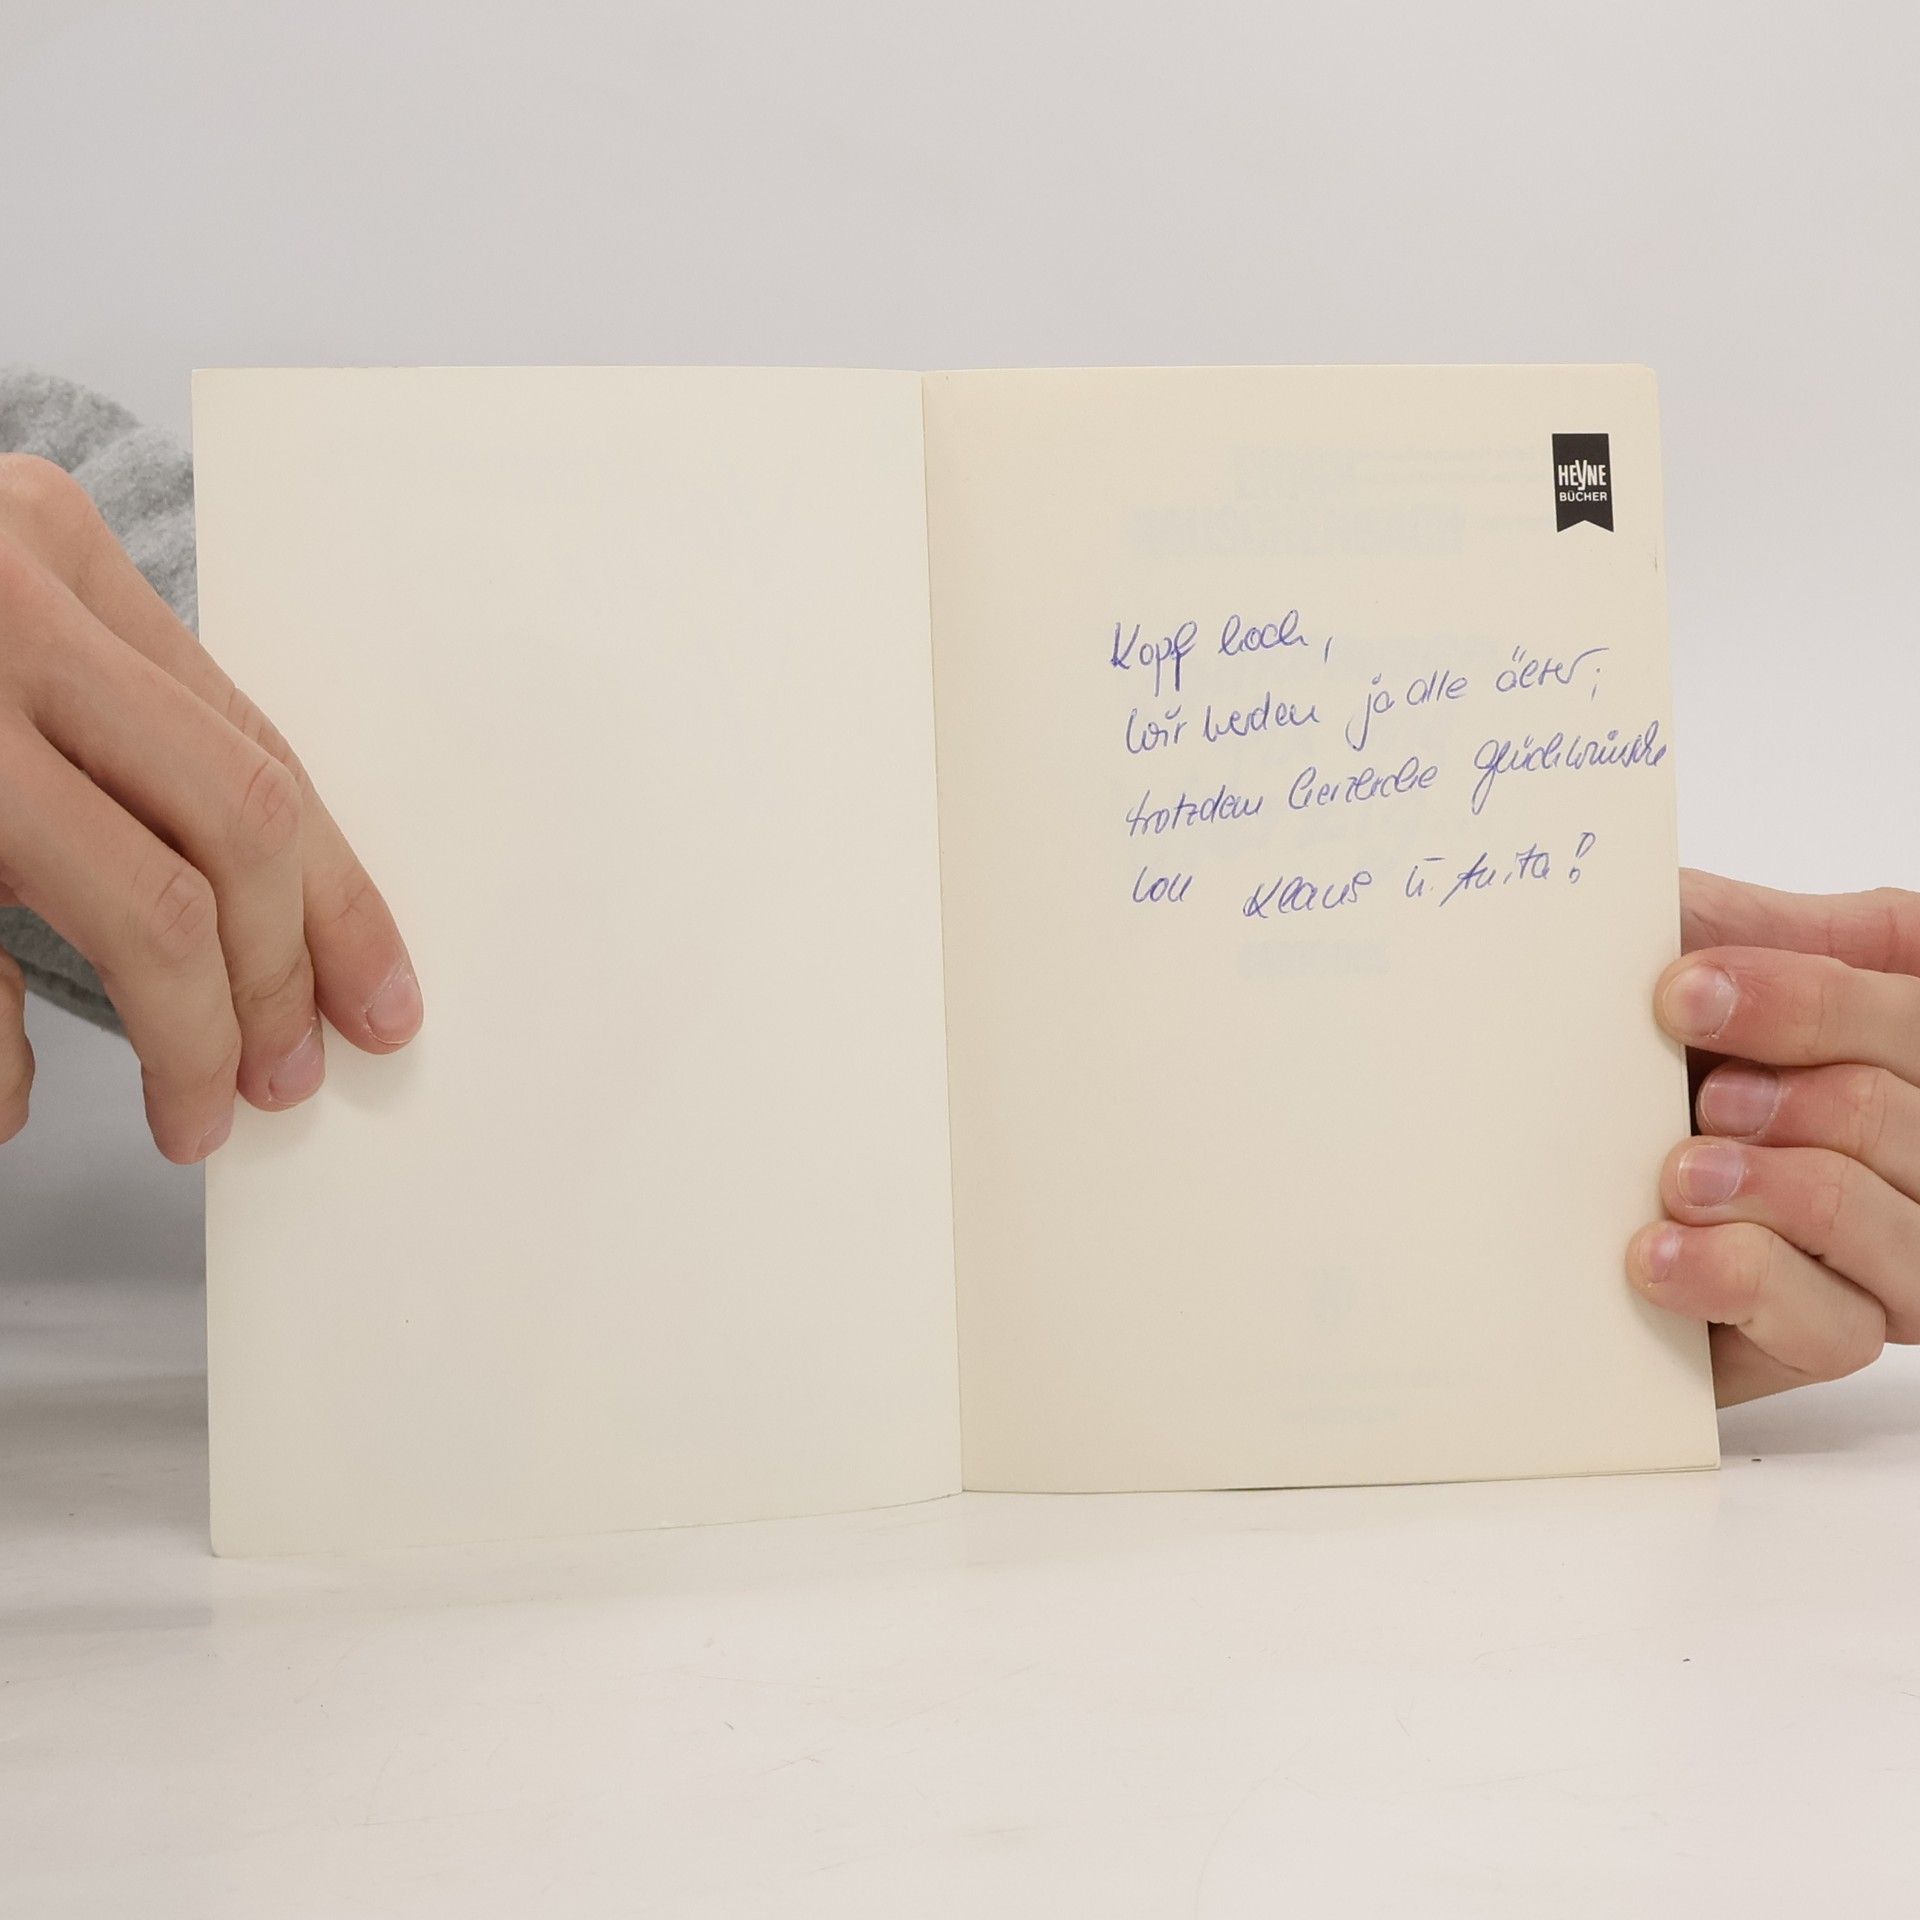 HEYNE
BÜCHER
Kopf hoch,
Wir werden ja alle älter;
trotzdem herzliche Glückwünsche
von Klaus u. Anita!